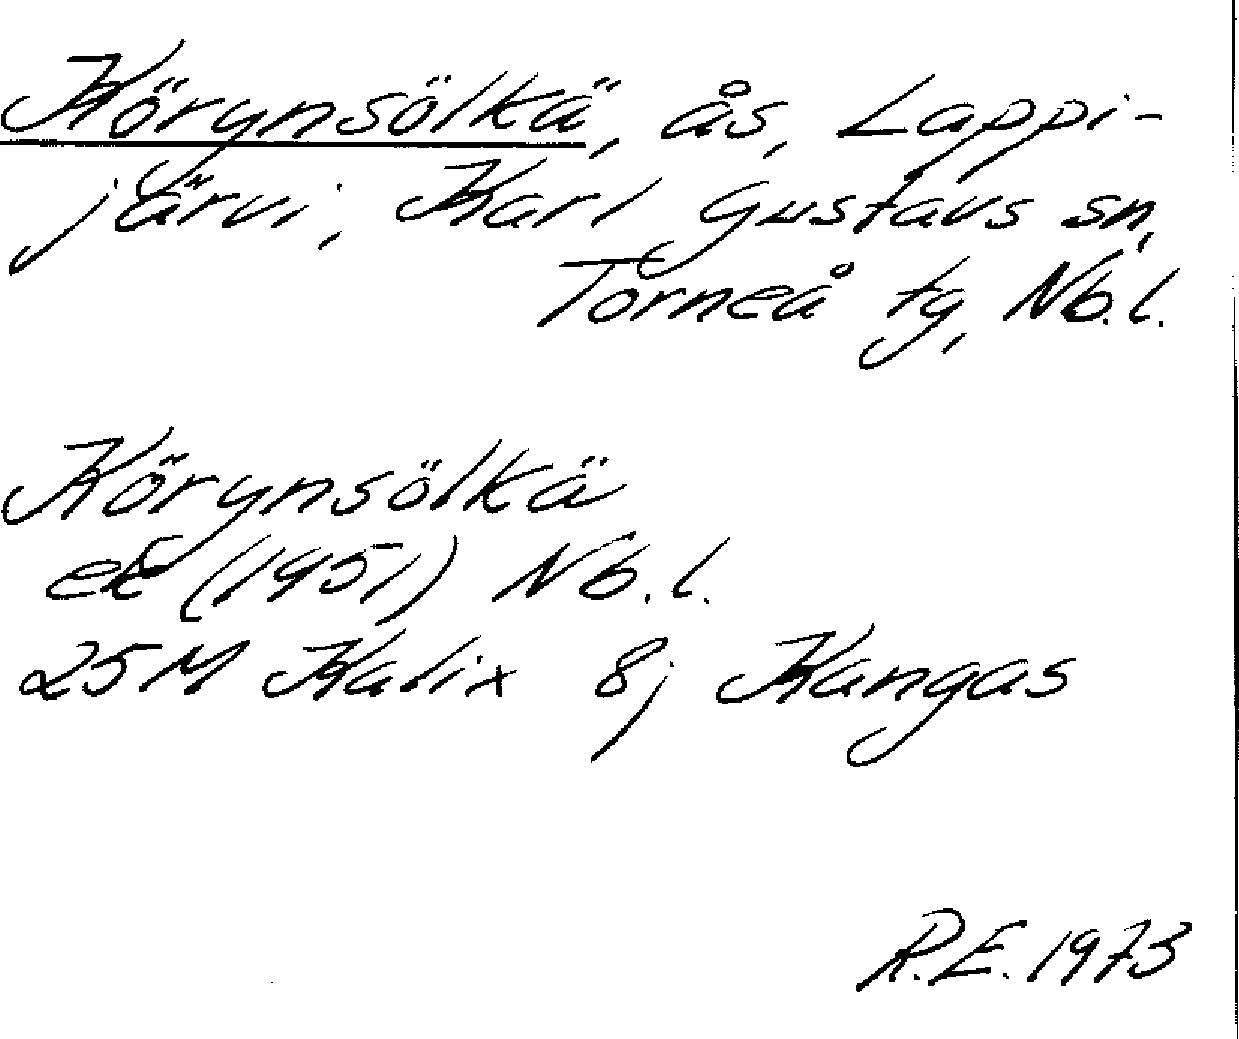 Körynsölkä, ås, Lappi-
järvi, Karl Gustavs sn,
Torneå tg, Nb.l.
Körynsölkä
ek (1951) Nb.l.
25M Kalix 8j Kangas
R.E. 1973